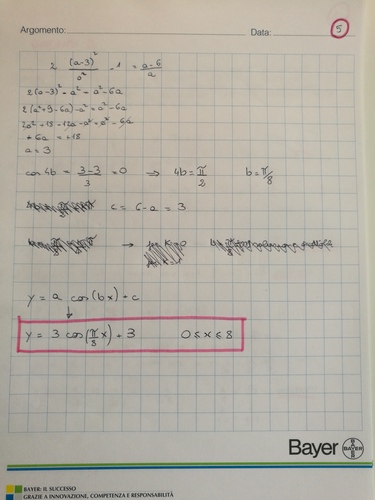 Argomento: Data: 5
2 (a-3)²/a² - 1 = a-6/a
2(a-3)² - a² = a² - 6a
2(a²+9-6a) - a² = a² - 6a
2a² + 18 - 12a - a² = a² - 6a
+6a = +18
a = 3
cos4b = 3-3/3 = 0 ⇒ 4b = π/2 b = π/8
c = 6-a = 3
→
y = a cos(bx) + c
↓
y = 3 cos(π/8 x) + 3 0≤x≤8
Bayer BAYER
BAYER: IL SUCCESSO
GRAZIE A INNOVAZIONE, COMPETENZA E RESPONSABILITÀ